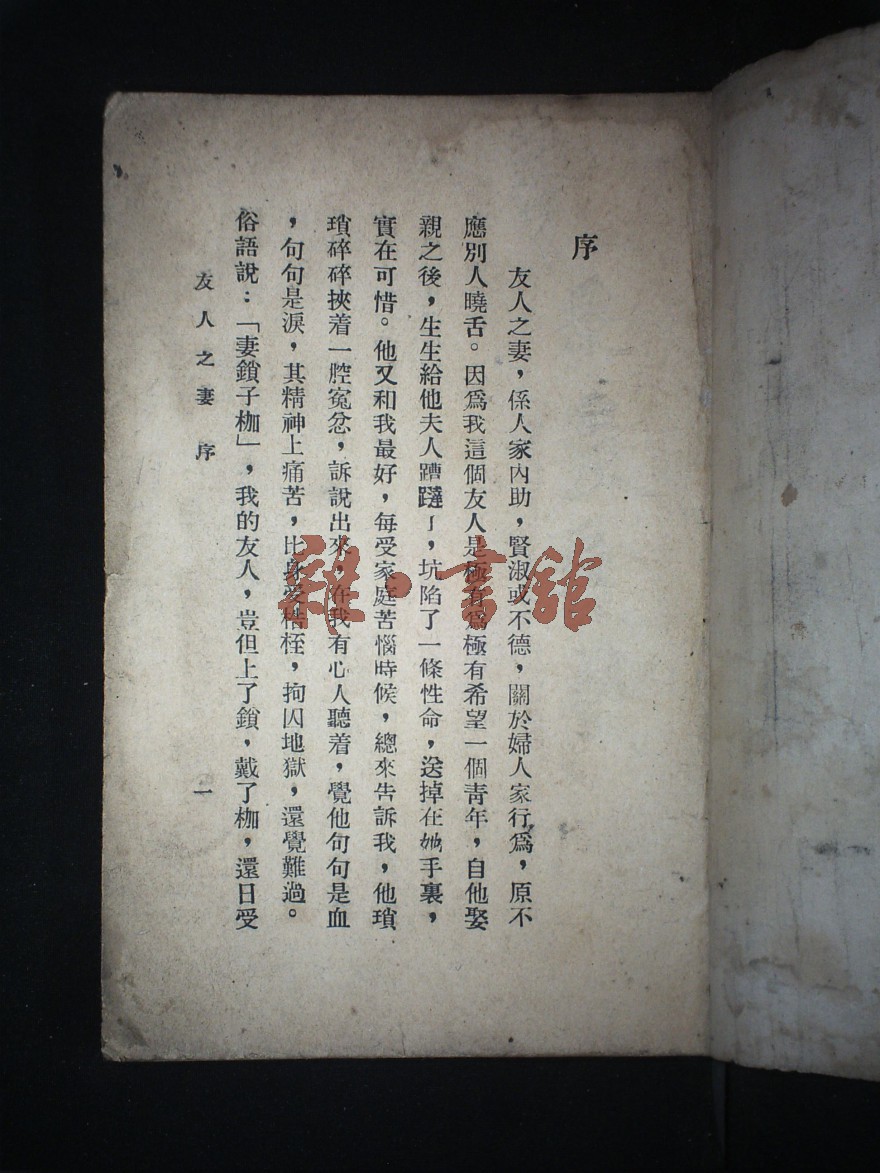 序
友人之妻，係人家內助，賢淑或不德，關於婦人家行爲，原不
應別人曉舌。因爲我這個友人是極有爲極有希望一個靑年，自他娶
親之後，生生給他夫人蹧躂了，坑陷了一條性命，送掉在她手裏，
實在可惜。他又和我最好，每受家庭苦惱時候，總來告訴我，他瑣
瑣碎碎挾着一腔寃忿，訴說出來，在我有心人聽着，覺他句句是血
，句句是淚，其精神上痛苦，比身受梏桎，拘囚地獄，還覺難過。
俗語說：「妻鎖子枷」，我的友人，豈但上了鎖，戴了枷，還日受
友人之妻 序 一
雜·書館